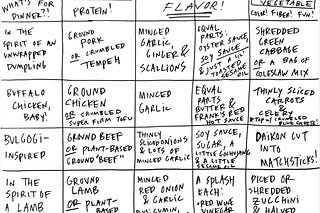 WHAT'S FOR DINNER?!
PROTEIN!
FLAVOR!
VEGETABLE
COLOR! FIBER! FUN!
IN THE SPIRIT OF AN UNWRAPPED DUMPLING
GROUND PORK OR CRUMBLED TEMPEH
MINCED GARLIC, GINGER & SCALLIONS
EQUAL PARTS: OYSTER SAUCE, SOY SAUCE & JUST A
SESAME OIL
SHREDDED GREEN CABBAGE OR A BAG OF COLESLAW MIX
BUFFALO CHICKEN, BABY!
GROUND CHICKEN OR CRUMBLED SUPER FIRM TOFU
MINCED GARLIC
EQUAL PARTS BUTTER & FRANK'S RED HOT SAUCE
THINLY SLICED CARROTS & CELERY
CRUMBLED BLUE CHEESE!
BULGOGI-INSPIRED
GROUND BEEF OR PLANT-BASED GROUND "BEEF"
THINLY SLICED ONIONS & LOTS OF MINCED GARLIC
SOY SAUCE, SUGAR, A LITTLE GOCHUJANG & A LITTLE SESAME OIL
DAIKON CUT INTO MATCHSTICKS!
IN THE SPIRIT OF A LAMB
GROUND LAMB OR PLANT-BASED
MINCED RED ONION & GARLIC
CUMIN,
A SPLASH EACH: RED WINE VINEGAR
DICED OR SHREDDED ZUCCHINI
& HALVED